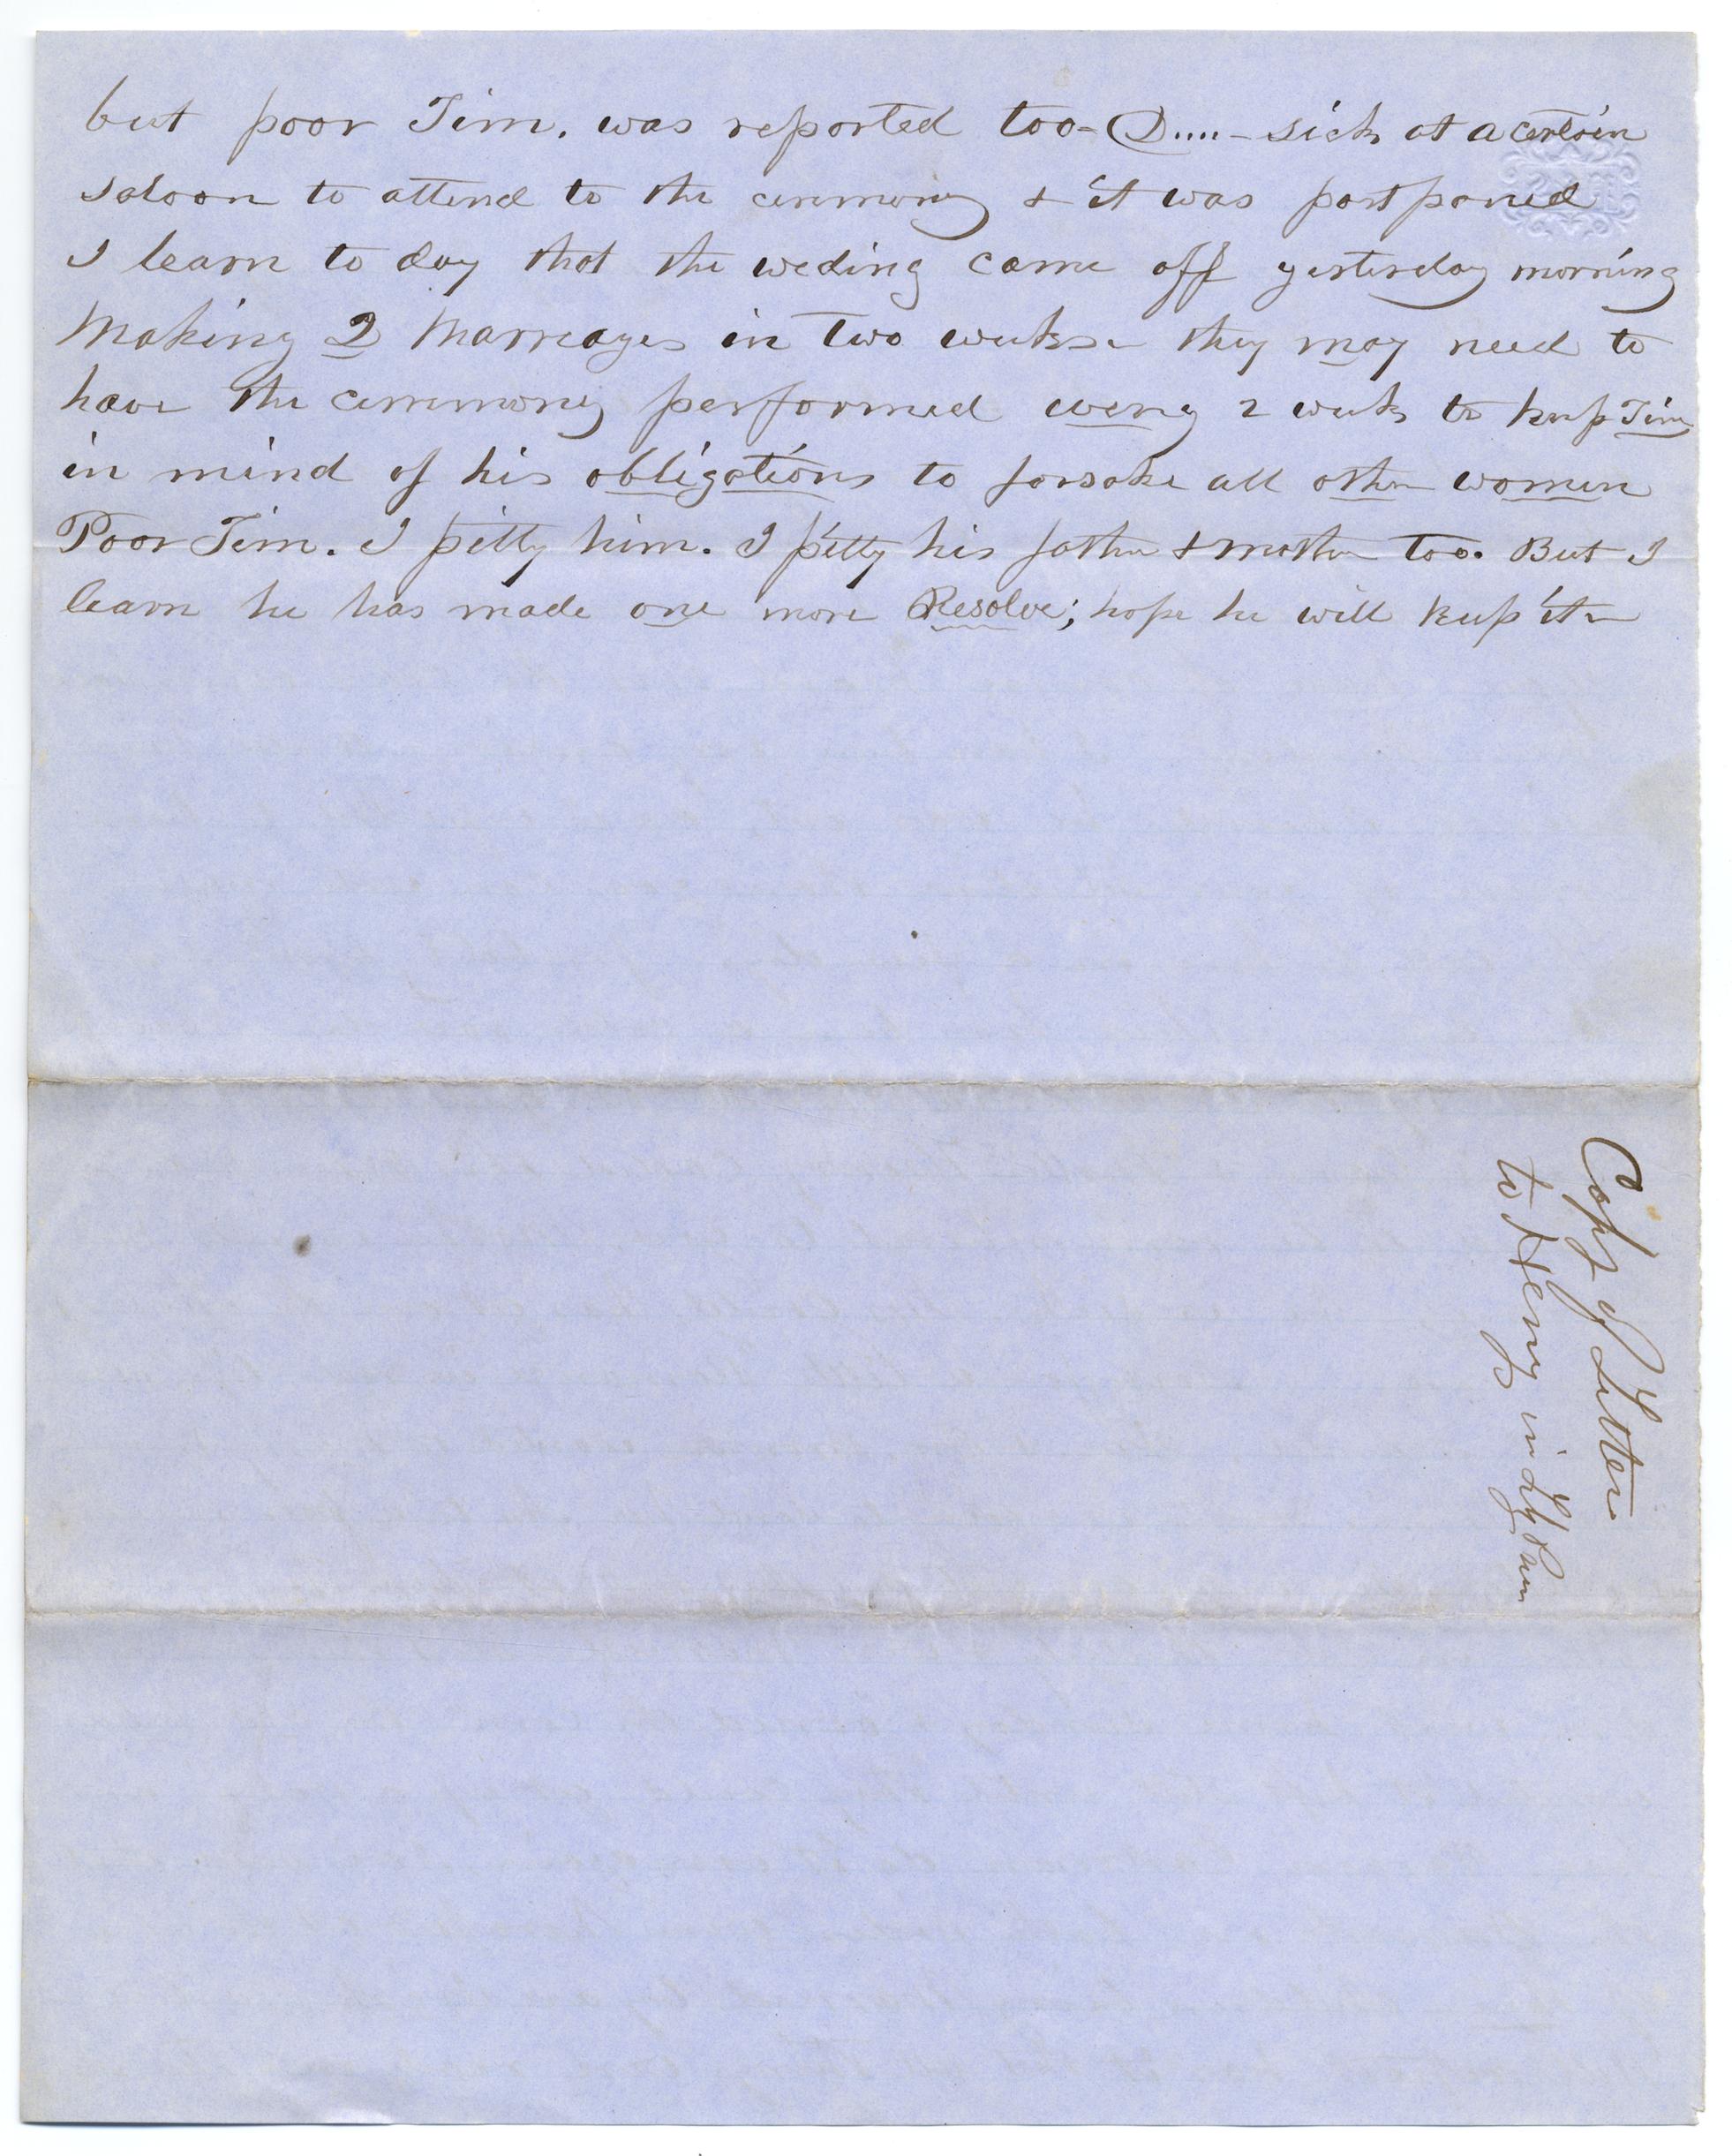 but poor Tim. was reported too - D.... - sick at a certain
saloon to attend to the ceremony & it was postponed
I learn to day that the weding came off yesterday morning
Making 2 Marreages in Two weeks - they may need to
have the ceremony performed every 2 weeks to keep Tim
in mind of his obligations to forsake all other women
Poor Tim. I pitty him. I pitty his father & mother Too. But I
learn he has made one more Resolve; hope he will keep it -
Copy of Letter
to Henry in